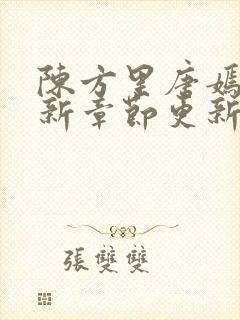 陳方里唐嫣
新章節更新
張雙雙